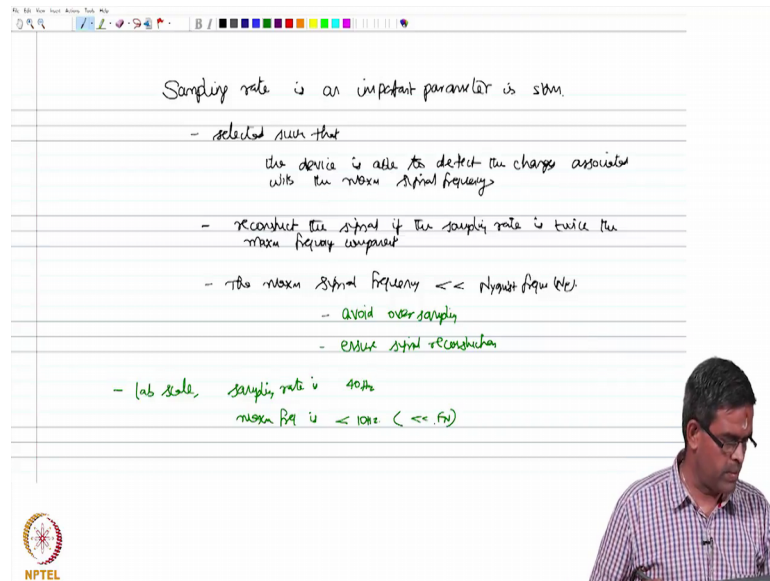 File Edit View Insert Actions Tools Help
B I
Sampling rate is an important parameter is SHM.
- selected such that
the device is able to detect the changes associated
with the maxm signal frequency
- reconstruct the signal if the sampling rate is twice the
maxm frequency component
- The maxm signal frequency << Nyquist frequ
- avoid over sampling
- ensure signal reconstruction
- lab scale, sampling rate is 40Hz
maxm freq is < 10Hz (<< FN)
NPTEL